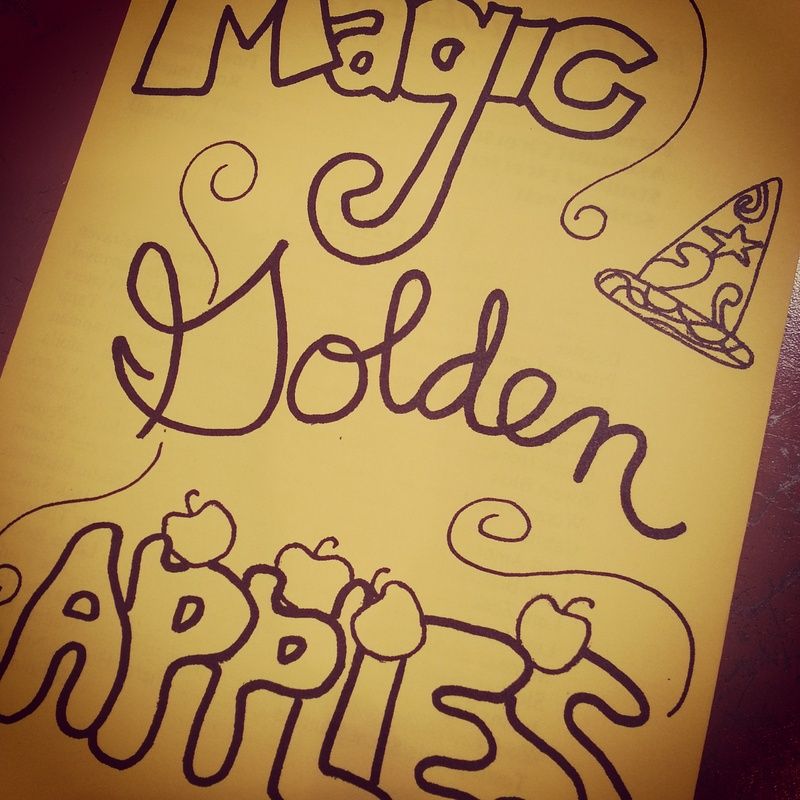 Magic
Golden
APPlES